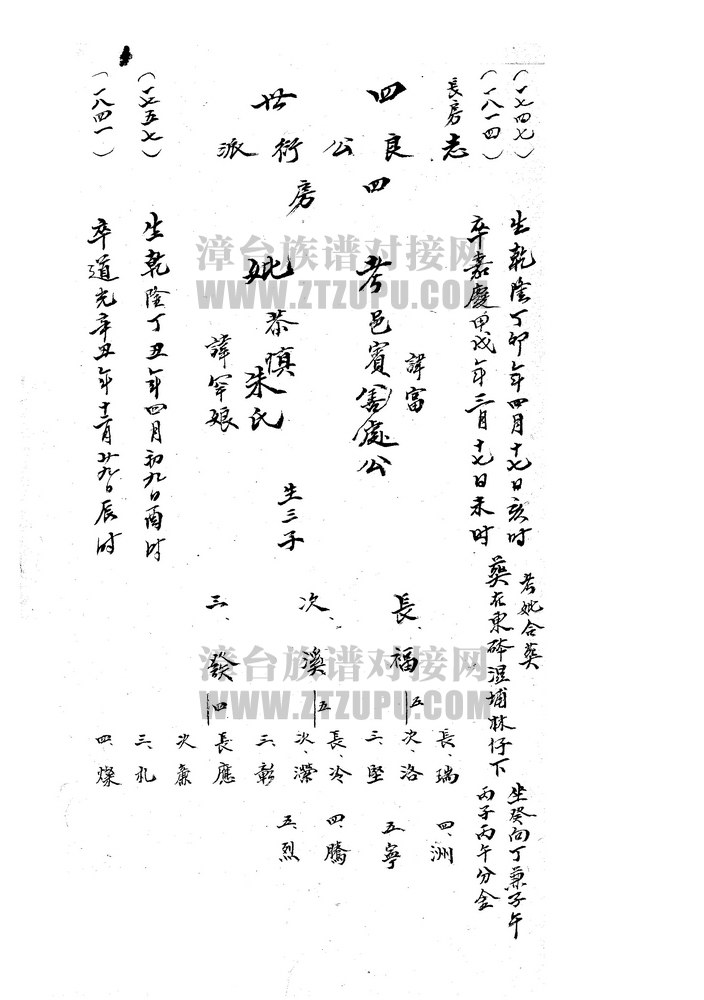 (一七四七)
(一八一四)
生乾隆丁卯年四月十七日亥时
卒嘉慶甲戌年三月十七日未时
考妣合葬
葬在東砵湿埔林仔下
坐癸向丁兼子午
丙子丙午分金
四世
長房志良公衍派
四房
考邑賓 公
諱富
妣恭慎朱氏
諱罕娘
生三子
長、福
五
長、瑞
次、洛
三、堅
四、洲
五、寧
次、溪
五
長、冷
次、濚
三、彰
四、騰
五、烈
三、發
四
長應
次、廉
三、札
四、燦
(一七五七)
(一八四一)
生乾隆丁丑年四月初九日酉时
卒道光辛丑年十二月廿九日辰时
漳台族谱对接网
WWW.ZTZUPU.COM
漳台族谱对接网
WWW.ZTZUPU.COM